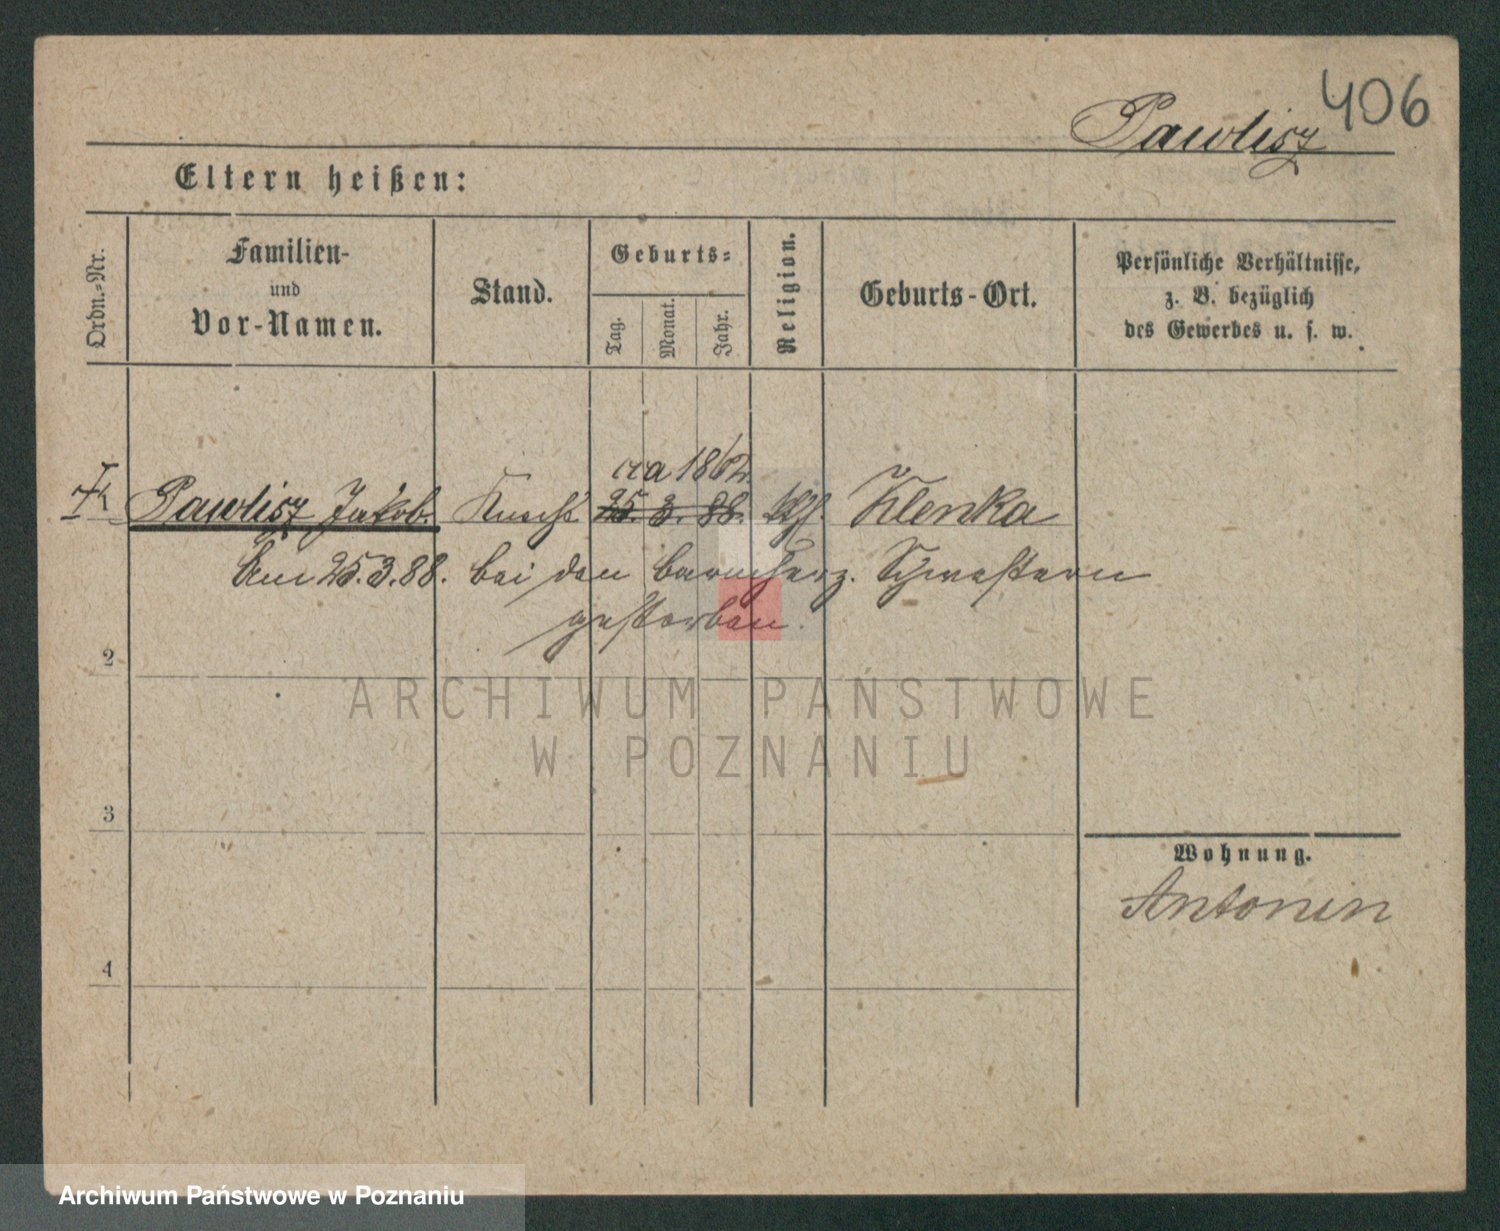 406
Pawlisz
Eltern heißen:
Ordn.-Nr.
Familien-
und
Vor-Namen.
Stand.
Geburts-
Tag.
Monat.
Jahr.
Religion.
Geburts-Ort.
Persönliche Verhältnisse,
z. B. bezüglich
des Gewerbes u. s. w.
cca 1862
Pawlisz Jakob. Knecht 25. 3. 88. kth. Klenka
Am 25.3.88. bei den barmherz. Schwestern
gestorben.
2
ARCHIWUM PAŃSTWOWE
W POZNANIU
3
Wohnung.
Antonin
4
Archiwum Państwowe w Poznaniu